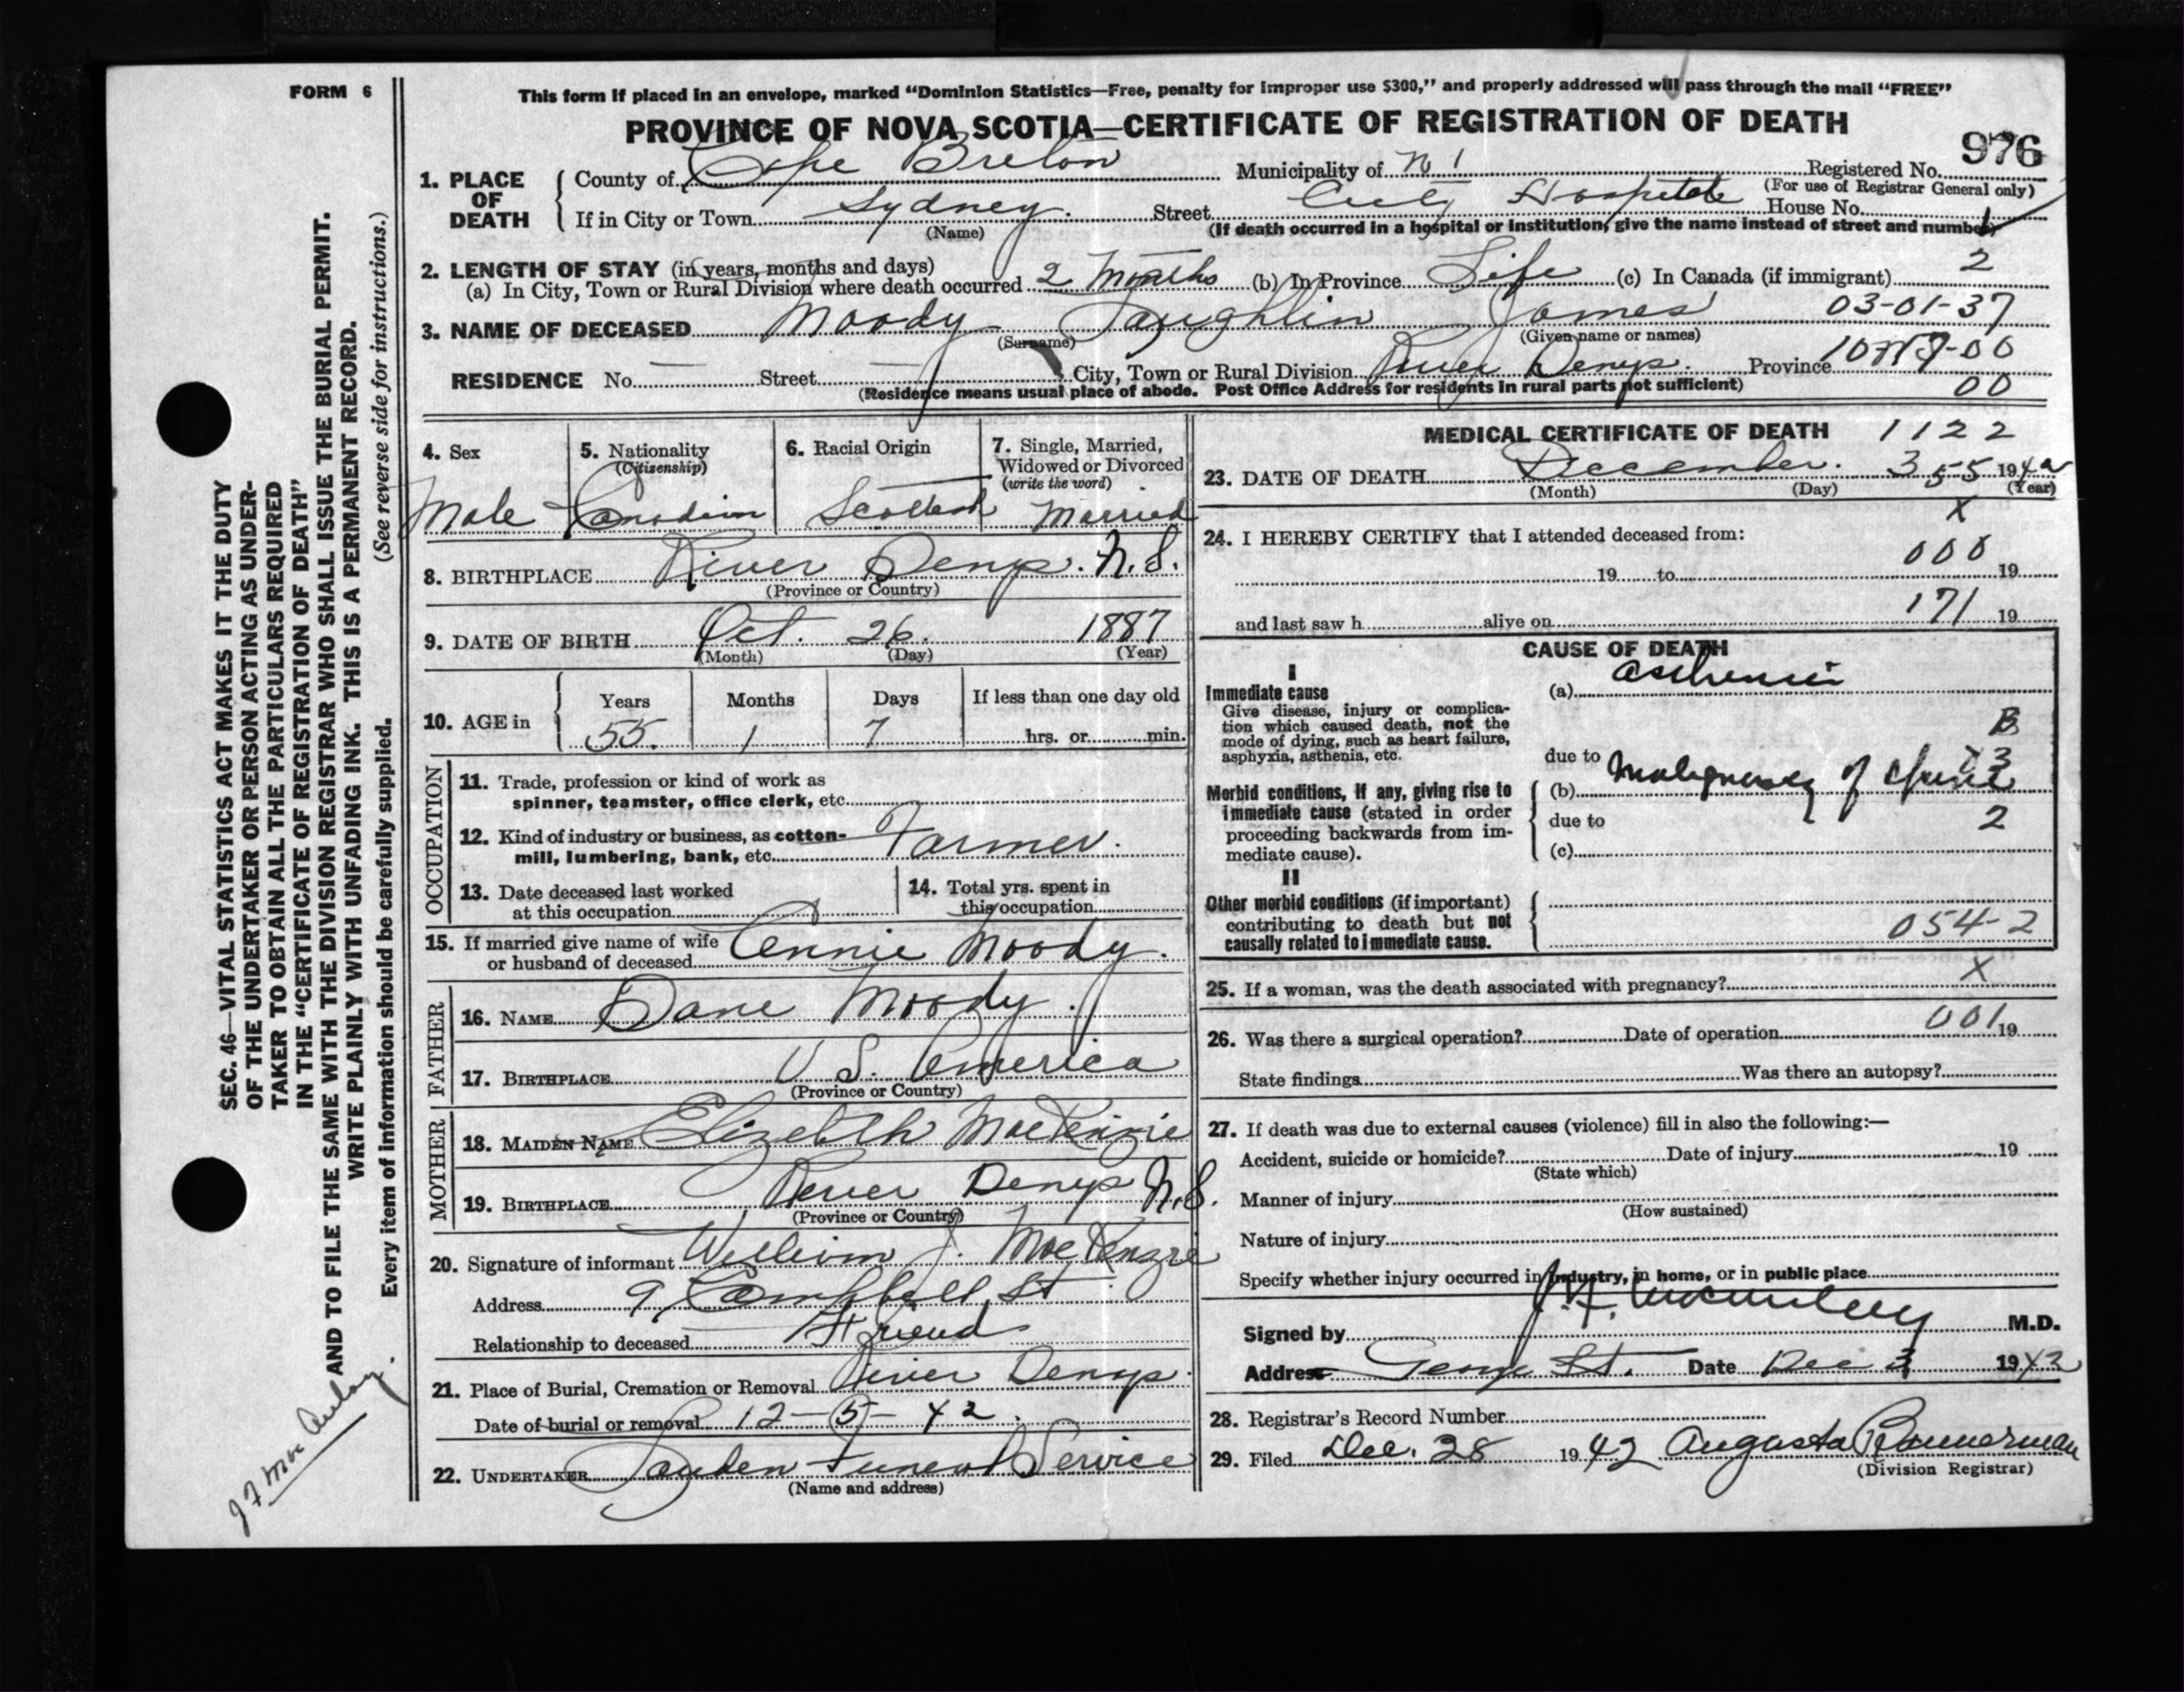 FORM 6
This form if placed in an envelope, marked “Dominion Statistics—Free, penalty for improper use $300,” and properly addressed will pass through the mail “FREE”
PROVINCE OF NOVA SCOTIA—CERTIFICATE OF REGISTRATION OF DEATH
976
1. PLACE OF DEATH
County of Cape Breton Municipality of No 1 Registered No.
(For use of Registrar General only)
If in City or Town Sydney. Street City Hospital House No. 1
(Name) (If death occurred in a hospital or institution, give the name instead of street and number)
2. LENGTH OF STAY (in years, months and days) 2
(a) In City, Town or Rural Division where death occurred 2 Months (b) In Province Life (c) In Canada (if immigrant)
3. NAME OF DECEASED Moody Laughlin James 03-01-37
(Surname) (Given name or names)
RESIDENCE No. — Street — City, Town or Rural Division River Denys. Province
(Residence means usual place of abode. Post Office Address for residents in rural parts not sufficient) 00
4. Sex
Male
5. Nationality
(Citizenship)
Canadian
6. Racial Origin
Scottish
7. Single, Married,
Widowed or Divorced
(write the word)
Married
8. BIRTHPLACE River Denys. N.S.
(Province or Country)
9. DATE OF BIRTH Oct. 26. 1887
(Month) (Day) (Year)
10. AGE in
Years Months Days If less than one day old
55. 1 7 hrs. or min.
OCCUPATION
11. Trade, profession or kind of work as
spinner, teamster, office clerk, etc.
12. Kind of industry or business, as cotton-
mill, lumbering, bank, etc. Farmer.
13. Date deceased last worked
at this occupation
14. Total yrs. spent in
this occupation
15. If married give name of wife
or husband of deceased Annie Moody.
FATHER
16. NAME Dane Moody.
17. BIRTHPLACE U S. America
(Province or Country)
MOTHER
18. MAIDEN NAME Elizebth MacKenzie
19. BIRTHPLACE River Denys N.S.
(Province or Country)
20. Signature of informant William J. MacKenzie
Address 9 Campbell St
Relationship to deceased Friend
21. Place of Burial, Cremation or Removal River Denys.
Date of burial or removal 12-5-42.
22. UNDERTAKER Funeral Service
(Name and address)
MEDICAL CERTIFICATE OF DEATH 1122
23. DATE OF DEATH December. 3 55 1942
(Month) (Day) (Year)
X
24. I HEREBY CERTIFY that I attended deceased from:
000
19 to 19
171
and last saw h alive on 19
CAUSE OF DEATH
I
Immediate cause
Give disease, injury or complica-
tion which caused death, not the
mode of dying, such as heart failure,
asphyxia, asthenia, etc.
(a) asthenia
B
due to
Morbid conditions, if any, giving rise to
immediate cause (stated in order
proceeding backwards from im-
mediate cause).
(b) Malignancy of spine
due to 2
(c)
II
Other morbid conditions (if important)
contributing to death but not
causally related to immediate cause.
054-2
X
25. If a woman, was the death associated with pregnancy?
001
26. Was there a surgical operation? Date of operation 19
State findings Was there an autopsy?
27. If death was due to external causes (violence) fill in also the following:—
Accident, suicide or homicide? Date of injury 19
(State which)
Manner of injury
(How sustained)
Nature of injury
Specify whether injury occurred in industry, in home, or in public place
Signed by M.D.
Address George St. Date Dec 3 1942
28. Registrar's Record Number
29. Filed Dec. 28 1942 Augusta Bannerman
(Division Registrar)
SEC. 46—VITAL STATISTICS ACT MAKES IT THE DUTY
OF THE UNDERTAKER OR PERSON ACTING AS UNDER-
TAKER TO OBTAIN ALL THE PARTICULARS REQUIRED
IN THE “CERTIFICATE OF REGISTRATION OF DEATH”
AND TO FILE THE SAME WITH THE DIVISION REGISTRAR WHO SHALL ISSUE THE BURIAL PERMIT.
WRITE PLAINLY WITH UNFADING INK. THIS IS A PERMANENT RECORD.
Every item of information should be carefully supplied. (See reverse side for instructions.)
J F MacAulay